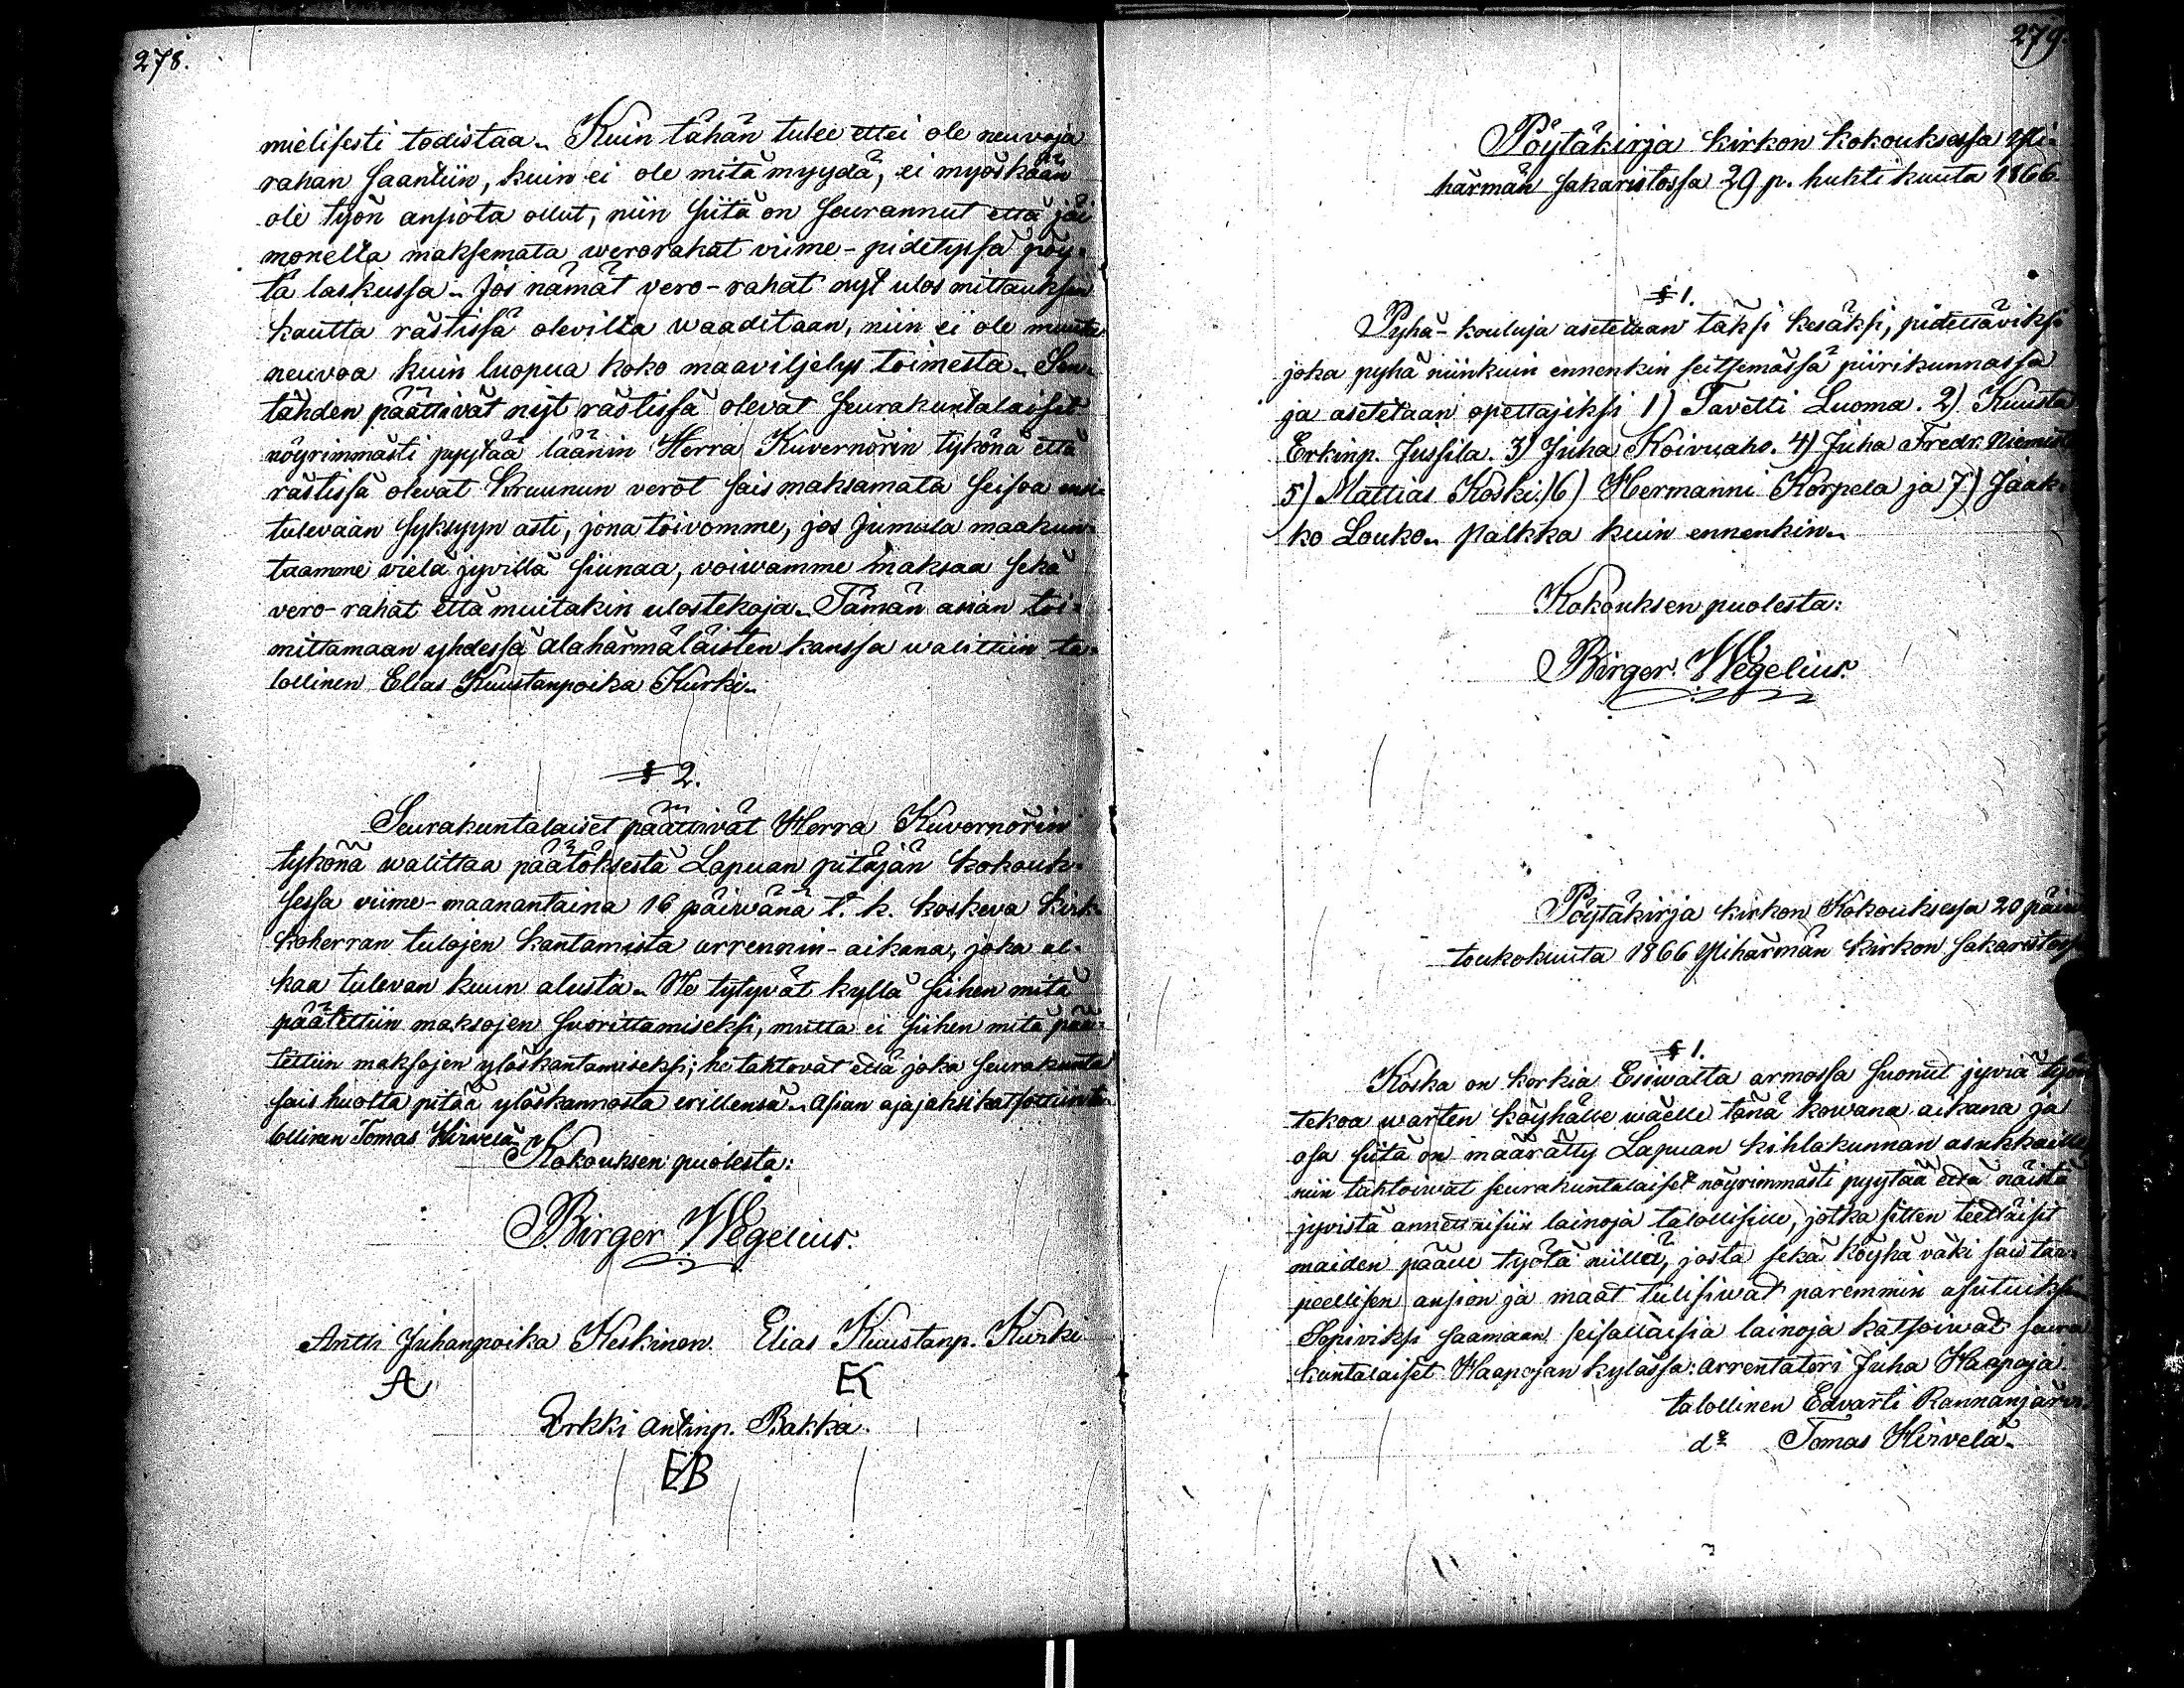 278.
mielisesti todistaa. Kuin tähän tulee ettei ole neuvoja
rahan saantiin, kuin ei ole mitä myydä, ei myöskään
ole työn ansiota ollut, niin siitä on seurannut että jäi
monelta maksemata werorahat viime-pidetyssä pöy-
tä laskussa. Jos nämät vero-rahat nyt ulos mittauksen
kautta rästissä olevilta waaditaan, niin ei ole muuta
neuvoa kuin luopua koko maaviljelys toimesta. Sen-
tähden päättivät nyt rästissä olevat seurakuntalaiset
nöyrimmästi pyytää läänin Herra Kuvernörin tykönä että
rästissä olevat Kruunun verot sais maksamata seisoa en-
tulevaan syksyyn asti, jona toivomme, jos Jumala maakun-
taamme vielä jyvillä siunaa, voiwamme maksaa sekä
vero-rahat että muitakin ulostekoja. Tämän asian toi-
mittamaan yhdessä alahärmäläisten kanssa walittiin ta-
lollinen Elias Kuustanpoika Kurki.
§ 2.
Seurakuntalaiset päättivät Herra Kuvernörin
tykönä walittaa päätöksestä Lapuan pitäjän kokouk-
sessa viime-maanantaina 16 päiwänä t. k. koskeva kirk-
koherran tulojen kantamista arrennin-aikana, joka al-
kaa tulevan kuun alusta. He tytyvät kyllä siihen mitä
päätettiin maksojen suorittamiseksi, mutta ei siihen mitä pää-
tettiin maksojen ylöskantamiseksi; he tahtovat että joka seurakunta
sais huolta pitää ylöskannosta erillensä. Asian ajajaksi katsottiin ta-
lollinen Tomas Hirvelä
Kokouksen puolesta:
Birger Wegelius.
Antti Juhanpoika Heskinen. Elias Kuustanp. Kurki
A EK
Erkki Antinp. Bakka.
EB
279.
Pöytäkirja kirkon kokouksessa Yli-
härmän sakaristossa 29 p. huhtikuuta 1866.
§ 1.
Pyhä-kouluja asetetaan täksi kesäksi, pidettäviksi
joka pyhä niinkuin ennenkin seitsemässä piirikunnassa
ja asetetaan opettajiksi 1) Tavetti Luoma. 2) Kuusta
Erkinp. Jussila. 3) Juha Koivuaho. 4) Juha Fredr. Niemistö
5) Mattias Koski. 6) Hermanni Korpela ja 7) Jaak-
ko Louko. palkka kuin ennenkin.
Kokouksen puolesta:
Birger Wegelius.
Pöytäkirja kirkon Kokouksessa 20 päiw
toukokuuta 1866 Ylihärmän kirkon sakaristossa
§ 1.
Koska on korkia Esiwalta armossa suonut jyviä työn
tekoa warten köyhälle wäelle tänä kowana aikana ja
osa siitä on määrätty Lapuan kihlakunnan asukkaille,
niin tahtoiwat seurakuntalaiset nöyrimmästi pyytää että näistä
jyvistä annettaisiin lainoja talollisille, jotka sitten teettäisit
maiden päälle työtä niillä, josta sekä köyhä väki sais tar-
peellisen ansion ja maat tulisiwat paremmin asutuiksi.
Sopiviksi saamaan seisallaisia lainoja katsoiwat seura
kuntalaiset Haapojan kylässä: arrentatori Juha Haapoja
talollinen Edvarti Rannanjärvi.
do Tomas Hirvelä.